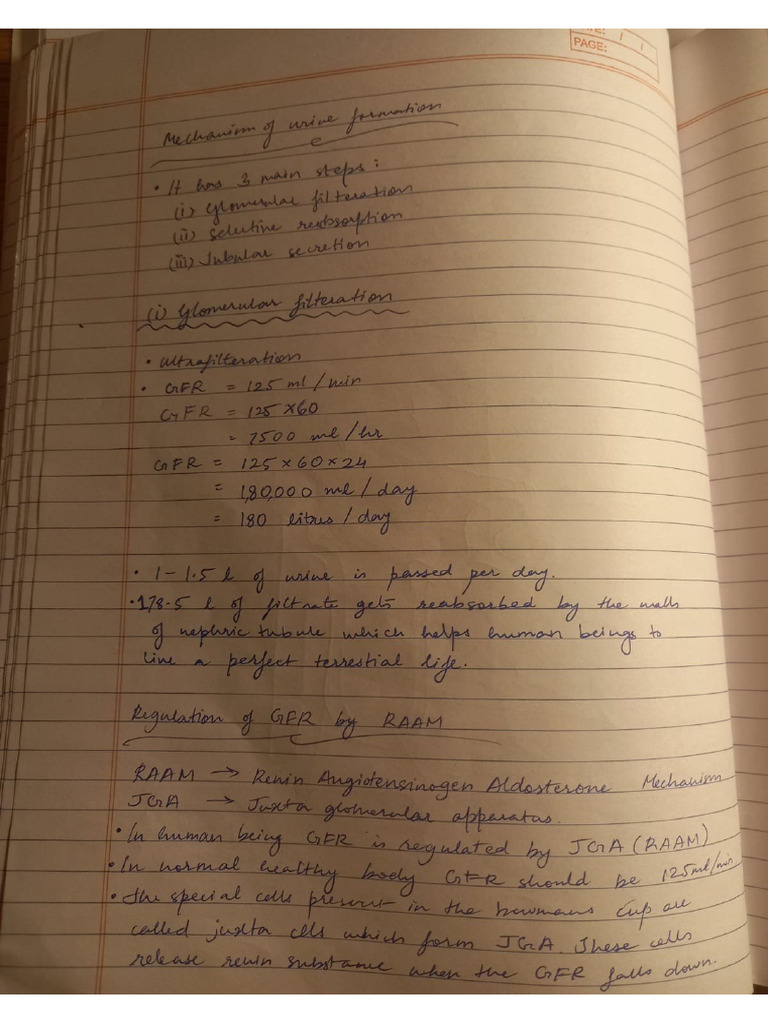 PAGE:
Mechanism of urine formation
• It has 3 main steps:
(i) Glomerular filteration
(ii) Selective reabsorption
(iii) Tubular secretion
(i) Glomerular filteration
• Ultrafilteration
• GFR = 125 ml / min
GFR = 125 × 60
= 7500 ml / hr
GFR = 125 × 60 × 24
= 1,80,000 ml / day
= 180 litres / day
• 1 - 1.5 l of urine is passed per day.
• 178.5 l of filtrate gets reabsorbed by the walls
of nephric tubule which helps human beings to
live a perfect terrestial life.
Regulation of GFR by RAAM
RAAM → Renin Angiotensinogen Aldosterone Mechanism
JGA → Juxta glomerular apparatus.
• In human being GFR is regulated by JGA (RAAM)
• In normal healthy body GFR should be 125ml/min
• The special cells present in the bowmans cup are
called juxta cells which form JGA. These cells
release renin substance when the GFR falls down.